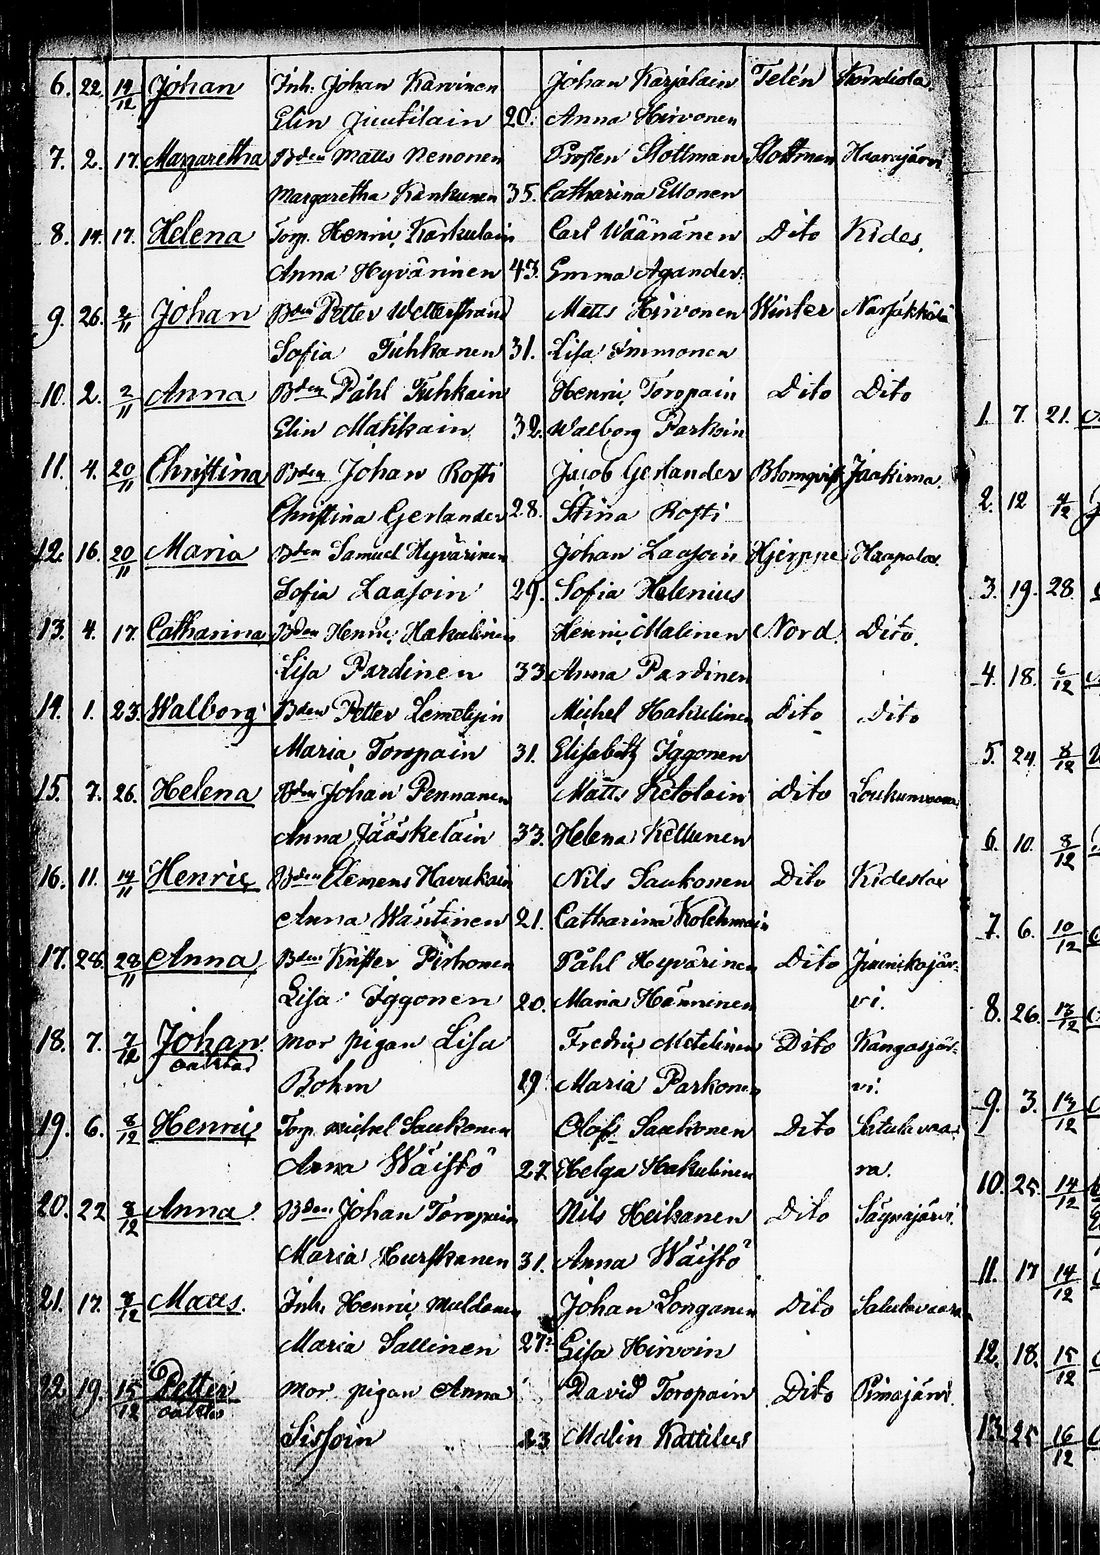 6. 22. 19/12 Johan Inh. Johan Karvinen Johan Karjalain Telén Kondiola
Elin Juutilain 20. Anna Hirvonen
7. 2. 17. Margaretha Bden Matts Nenonen Prosten Stottman Stottman Haarajärvi
Margaretha Kankunen 35. Catharina Ellonen
8. 14. 17. Helena Torp. Henric Karkulain Carl Wäänänen Dito Kides.
Anna Hyvärinen 43. Emma Agander.
9. 26. 2/11 Johan Bden Petter Wetterstrand Matts Hirvonen Winter Narsäkkälä
Sofia Tuhkanen 31. Lisa Immonen
10. 2. 2/11 Anna Bden Påhl Tuhkain Henric Toropain Dito Dito
Elin Matikain 32. Walborg Parkoin
11. 4. 20/11 Christina Bden Johan Rosti Jacob Gerlander Blomqvist Jaakima.
Christina Gerlander 28. Stina Rosti
12. 16. 20/11 Maria Bden Samuel Hyvärinen Johan Laasoin Hjerppe Haapala.
Sofia Laasoin 29. Sofia Helenius
13. 4. 17. Catharina Bden Henric Hakulinen Henric Malinen Nord. Dito.
Lisa Pardinen 33. Anna Pardinen
14. 1. 23. Walborg Bden Petter Lemetyin Michel Hakulinen Dito Dito
Maria Toropain 31. Elisabeth Iggonen
15. 7. 26. Helena Bden Johan Pennanen Matts Ketolain Dito Loukunvaara
Anna Jääskeläin 33. Helena Kettunen
16. 11. 14/11 Henric Bden Clemens Havukain Nils Saukonen Dito Kideslax
Anna Wäntinen 21. Catharina Kolehmain
17. 28. 28/11 Anna Bden Krister Pirhonen Påhl Hyvärinen Dito Juurikajär-
Lisa Iggonen 20. Maria Hänninen vi.
18. 7. 7/12 Johan mor pigan Lisa Fredric Metelinen Dito Kangasjär-
oäkta Bohm 19. Maria Parkonen vi.
19. 6. 8/12 Henric Torp. Michel Saukonen Olof Saukonen Dito Satulavaa-
Anna Wäistö 27. Helga Hakulinen ra.
20. 22 8/12 Anna Bden Johan Toropain Nils Heikanen Dito Sägnajärvi
Maria Hurskanen 31. Anna Wäistö
21. 17. 8/12 Matts. Inh. Henric Muldonen Johan Longanen Dito Satulavaara
Maria Sallinen 27. Lisa Hirvoin
22. 19. 15/12 Petter mor pigan Anna David Toropain Dito Pimajärvi
oäkta Sissoin 23 Malin Kattilus
1. 7. 21.
2. 12 4/12
3. 19. 28.
4. 18. 6/12
5. 24 8/12
6. 10. 8/12
7. 6. 10/12
8. 26. 13/12
9. 3. 13/12
10. 25. 14/12
11. 17 14/12
12. 18. 15/12
13. 25 16/12